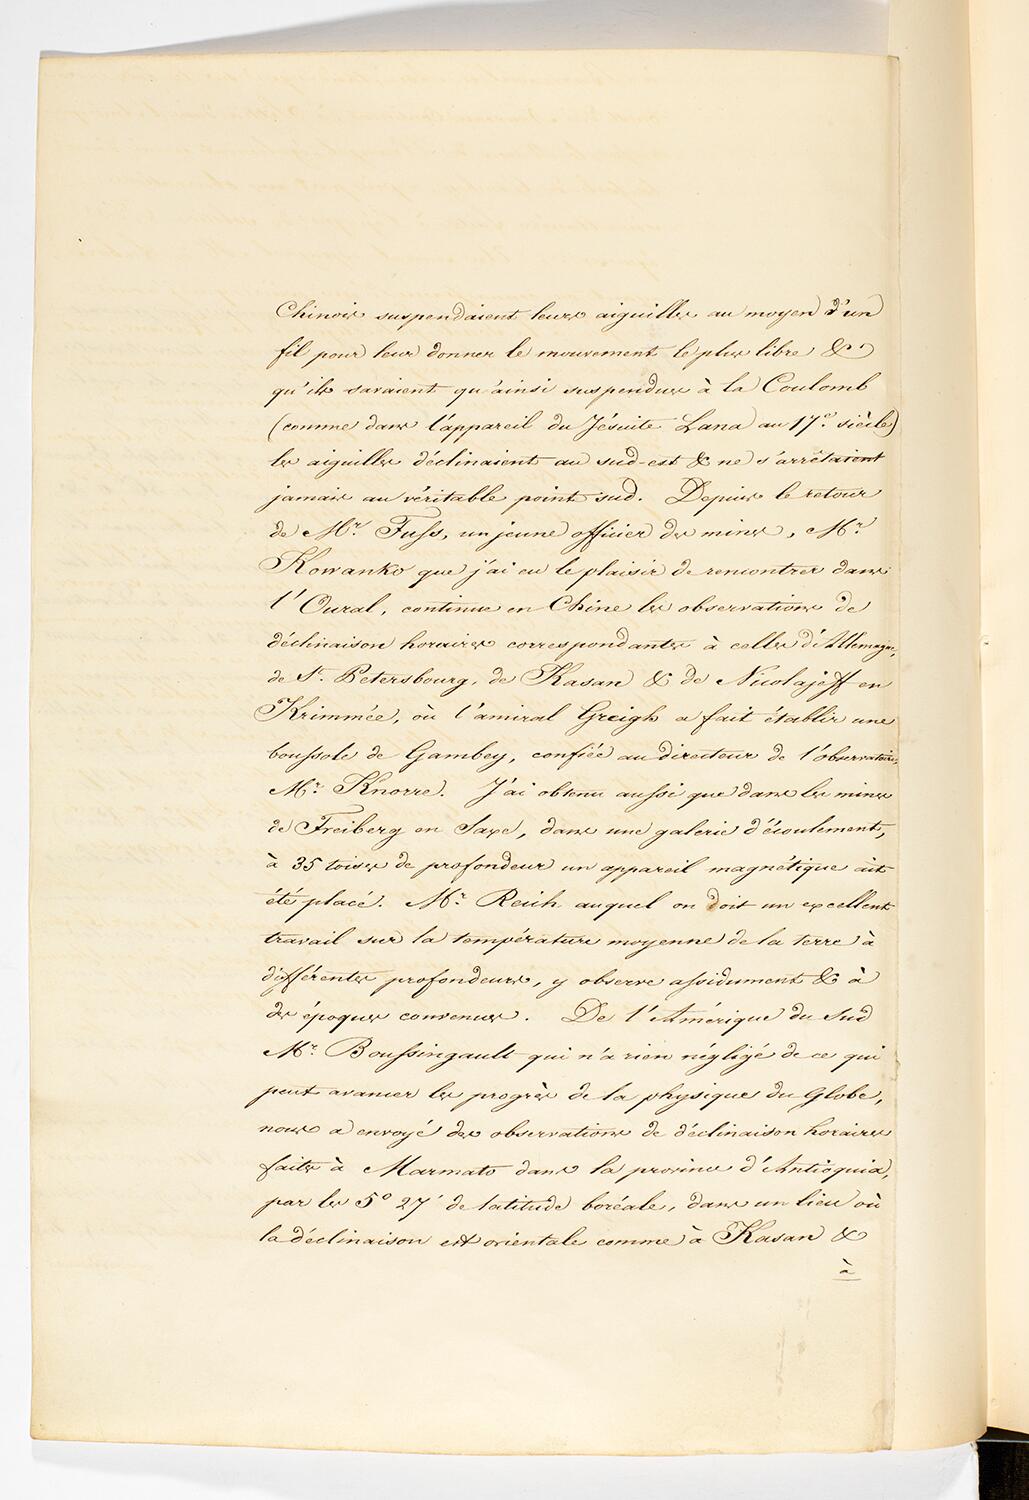 Chinois suspendaient leurs aiguilles au moyen d'un
fil pour leur donner le mouvement le plus libre &
qu'ils savaient qu'ainsi suspendues à la Coulomb
(comme dans l'appareil du Jésuite Lana au 17.e siècle)
les aiguilles déclinaient au sud-est & ne s'arrêtaient
jamais au véritable point sud. Depuis le retour
de Mr. Fuss, un jeune officier des mines, Mr.
Kowanko que j'ai eu le plaisir de rencontrer dans
l'Oural, continue en Chine les observations de
déclinaison horaires correspondantes à celles d'Allemagne,
de St. Petersbourg, de Kasan & de Nicolajeff en
Krimmée, où l'amiral Greigh a fait établir une
boussole de Gambey, confiée au directeur de l'observatoire,
Mr. Knorre. J'ai obtenu aussi que dans les mines
de Freiberg en Saxe, dans une galerie d'écoulement,
à 35 toises de profondeur un appareil magnétique ait
été placé. Mr. Reich auquel on doit un excellent
travail sur la température moyenne de la terre à
différentes profondeurs, y observe assidument & à
des époques convenues. De l'Amérique du Sud
Mr. Boussingault qui n'a rien négligé de ce qui
peut avancer les progrès de la physique du Globe,
nous a envoyé des observations de déclinaison horaires
faites à Marmato dans la province d'Antioquia,
par les 5° 27′ de latitude boréale, dans un lieu où
la déclinaison est orientale comme à Kasan &
à